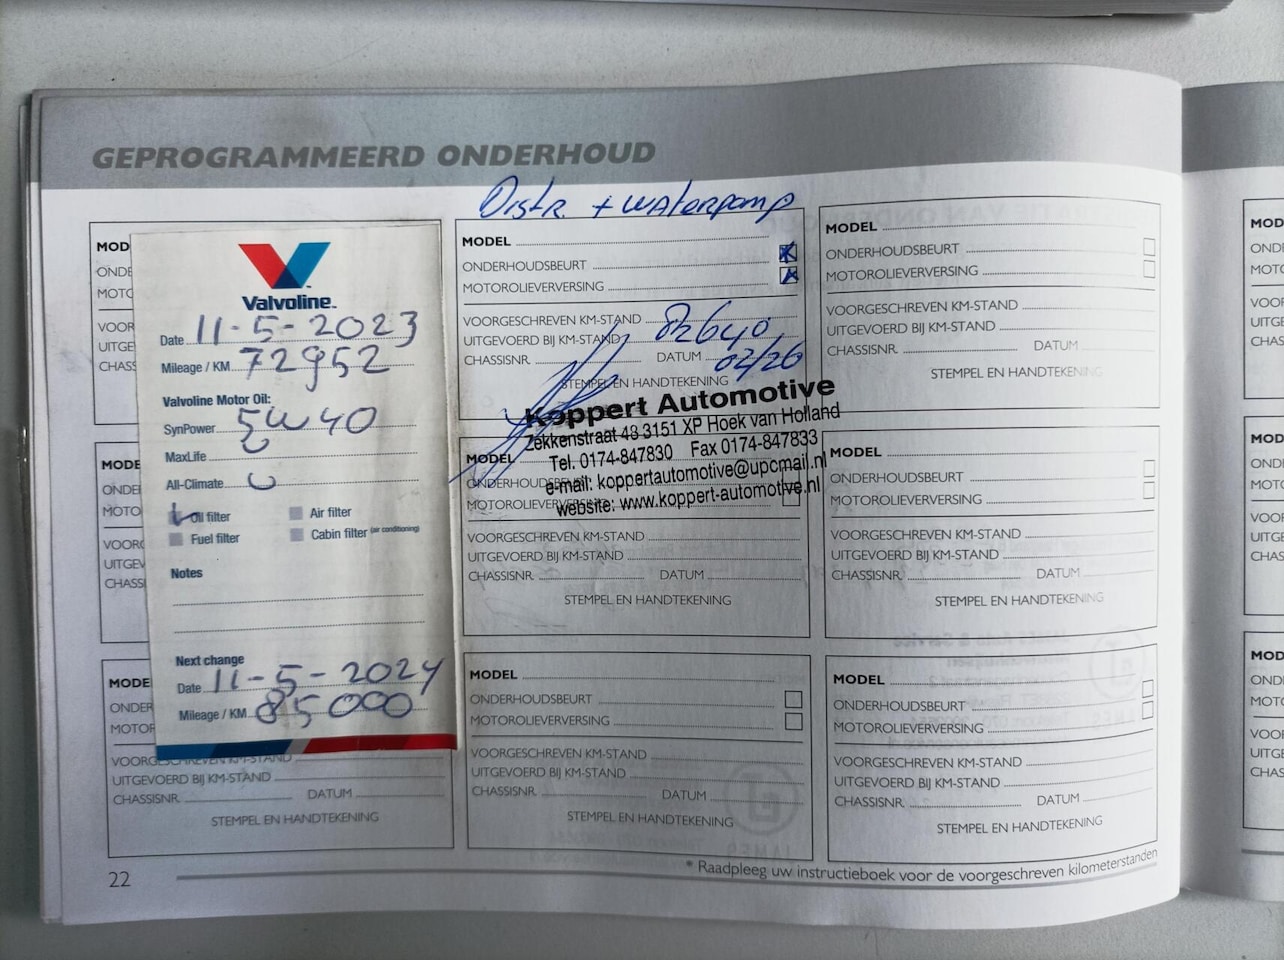 GEPROGRAMMEERD ONDERHOUD
Distr. + waterpomp
MOD
ONDE
MOTO
VOOR
UITGE
CHASS
Valvoline™
Date 11-5-2023
Mileage / KM 72952
Valvoline Motor Oil:
SynPower 5W40
MaxLife
All-Climate
Oil filter
Air filter
Fuel filter
Cabin filter (air conditioning)
Notes
Next change
Date 11-5-2024
Mileage / KM 85000
MODEL
ONDERHOUDSBEURT
MOTOROLIEVERVERSING
VOORGESCHREVEN KM-STAND
UITGEVOERD BIJ KM-STAND 82640
CHASSISNR. DATUM 02/26
STEMPEL EN HANDTEKENING
Koppert Automotive
Zekkenstraat 48 3151 XP Hoek van Holland
Tel. 0174-847830 Fax 0174-847833
e-mail: koppertautomotive@upcmail.nl
website: www.koppert-automotive.nl
MODEL
ONDERHOUDSBEURT
MOTOROLIEVERVERSING
VOORGESCHREVEN KM-STAND
UITGEVOERD BIJ KM-STAND
CHASSISNR. DATUM
STEMPEL EN HANDTEKENING
MODE
ONDE
MOTO
VOOR
UITGEV
CHASS
MODEL
MOTOROLIEVERVERSING
VOORGESCHREVEN KM-STAND
UITGEVOERD BIJ KM-STAND
CHASSISNR. DATUM
STEMPEL EN HANDTEKENING
MODEL
ONDERHOUDSBEURT
MOTOROLIEVERVERSING
VOORGESCHREVEN KM-STAND
UITGEVOERD BIJ KM-STAND
CHASSISNR. DATUM
STEMPEL EN HANDTEKENING
MODE
ONDER
MOTOR
VOORGESCHREVEN KM-STAND
UITGEVOERD BIJ KM-STAND
CHASSISNR. DATUM
STEMPEL EN HANDTEKENING
MODEL
ONDERHOUDSBEURT
MOTOROLIEVERVERSING
VOORGESCHREVEN KM-STAND
UITGEVOERD BIJ KM-STAND
CHASSISNR. DATUM
STEMPEL EN HANDTEKENING
MODEL
ONDERHOUDSBEURT
MOTOROLIEVERVERSING
VOORGESCHREVEN KM-STAND
UITGEVOERD BIJ KM-STAND
CHASSISNR. DATUM
STEMPEL EN HANDTEKENING
* Raadpleeg uw instructieboek voor de voorgeschreven kilometerstanden
22